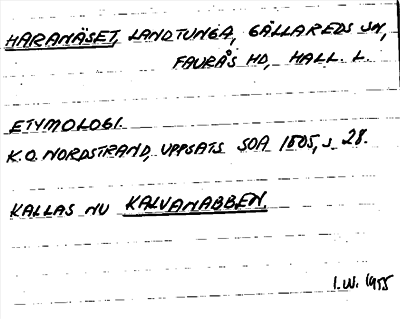 HARANÄSET, LANDTUNGA, GÄLLAREDS SN,
FAURÅS HD, HALL. L.
ETYMOLOGI.
K.O. NORDSTRAND, UPPSATS SOA 1505, s 28.
KALLAS NU KALVANABBEN.
I.W. 1955